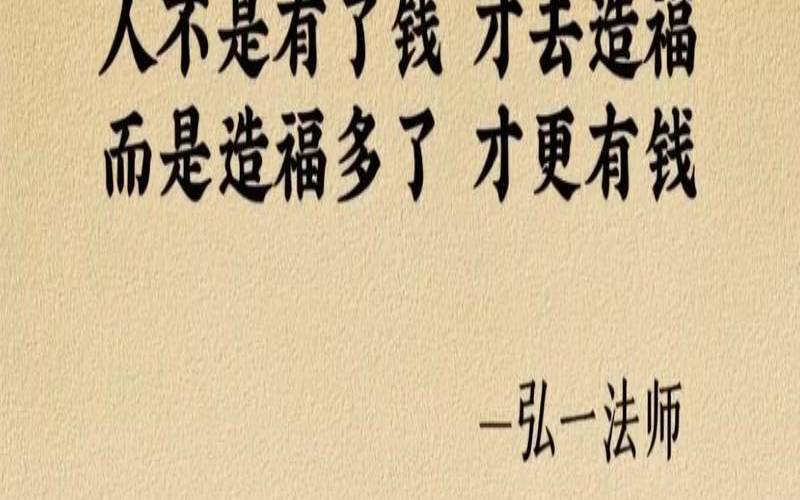 人不是有了钱 才去造福
而是造福多了 才更有钱
—弘一法师